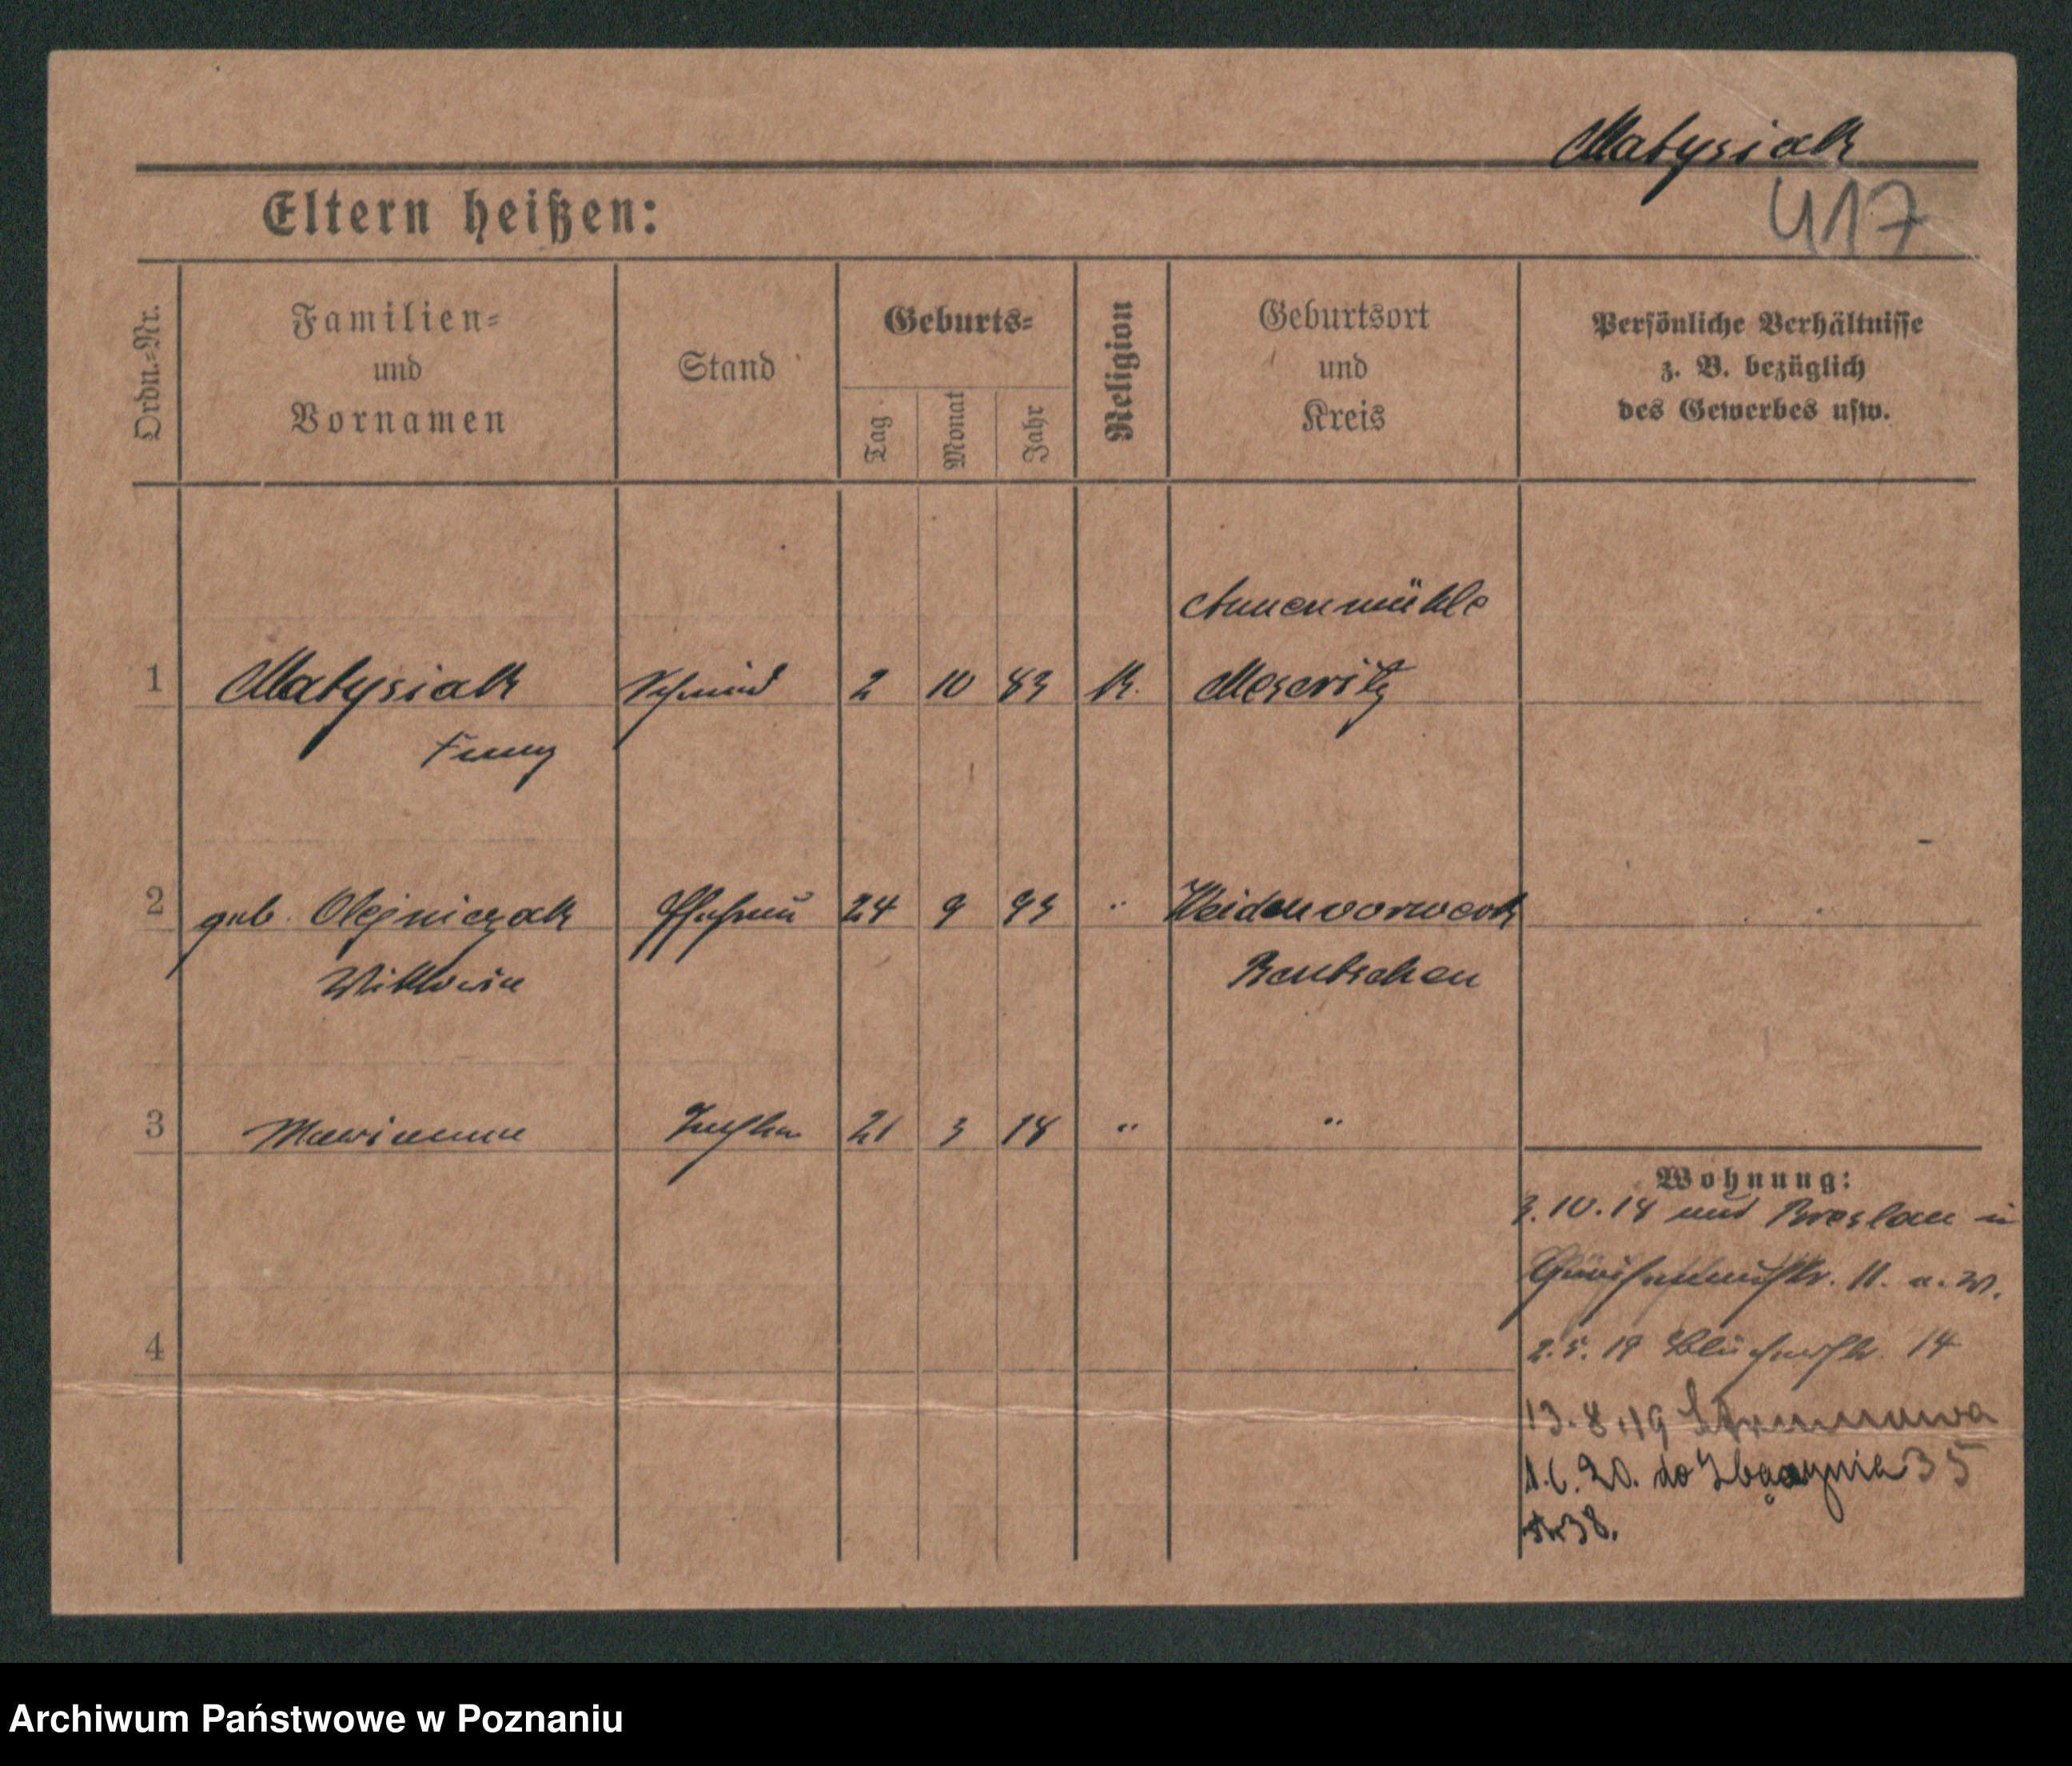 Matysiak
417
Eltern heißen:
Ordn.-Nr.
Familien-
und
Vornamen
Stand
Geburts-
Tag
Monat
Jahr
Religion
Geburtsort
und
Kreis
Persönliche Verhältnisse
z. B. bezüglich
des Gewerbes usw.
Annenmühle
1 Matysiak Schmied 2 10 83 K. Meseritz
Franz
2 geb. Olejniczak Ehefrau 24 9 93 " Weidenvorwerk
Wiktoria Bentschen
3 Marianna Tochter 21 3 18 " "
Wohnung:
3.10.18 aus Breslau in
11. a. W.
2.5.19 Blücherstr. 14
13.8.19
1.6.20. do Zbąszynia 35
38.
4
Archiwum Państwowe w Poznaniu